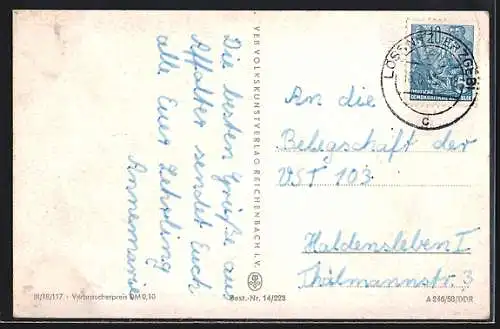 Die besten Grüße aus
Affalter sendet Euch
alle Euer Lehrling
Annemarie
VEB VOLKSKUNSTVERLAG REICHENBACH I. V.
LÖSSNITZ (ERZGEB)
c
DEUTSCHE
DEMOKRATISCHE REPUBLIK
An die
Belegschaft der
VST 103
Haldensleben I
Thälmannstr. 3
III/18/117 · Verbraucherpreis DM 0,10
Best.-Nr. 14/223
A 246/58/DDR